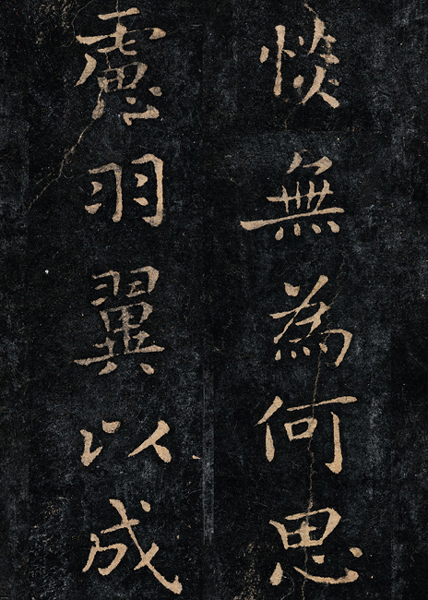 惔無為何思
慮羽翼以成